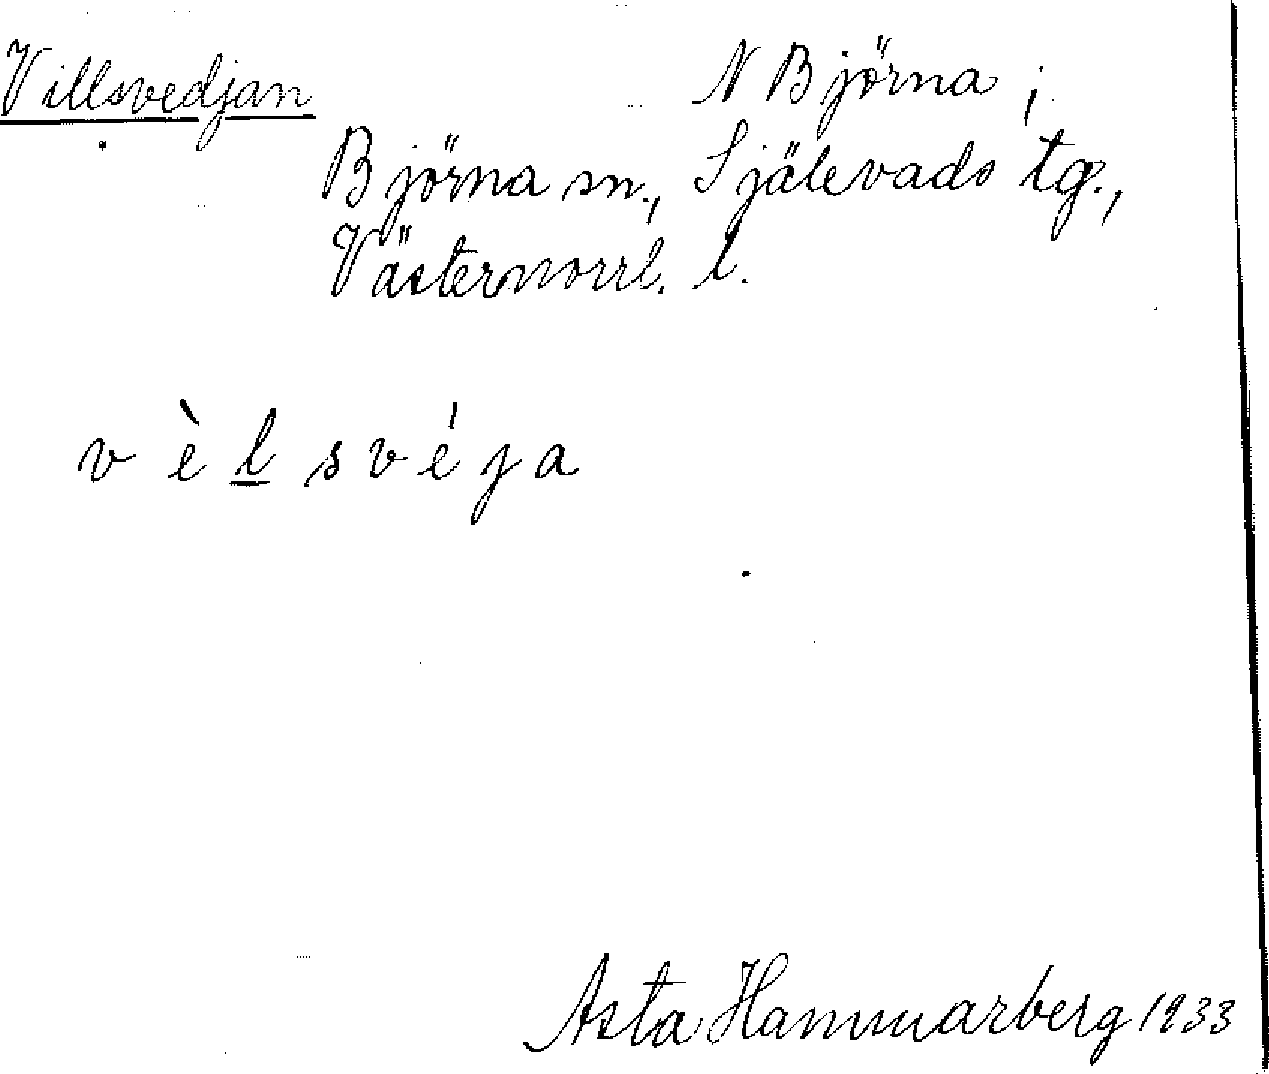 Villsvedjan N Björna ;
Björna sn., Själevads tg.,
Västernorrl. l.
v è l s v é j a
Asta Hammarberg 1933